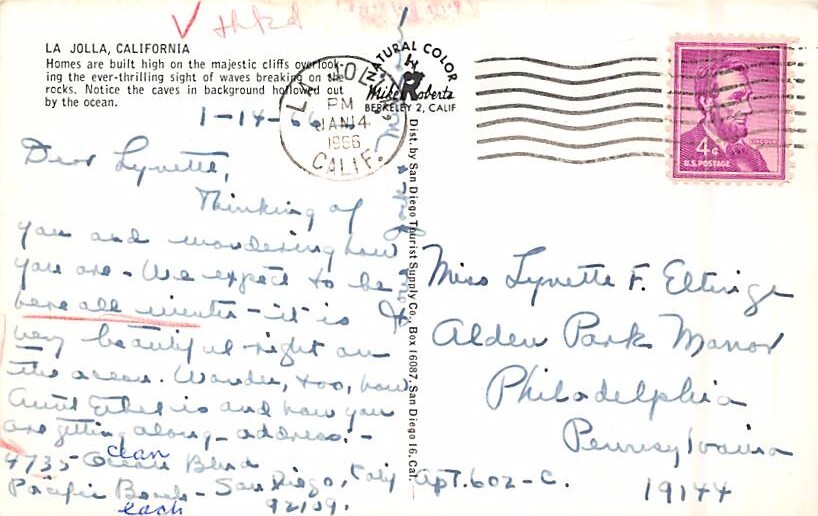 V thkd
LA JOLLA, CALIFORNIA
Homes are built high on the majestic cliffs overlook-
ing the ever-thrilling sight of waves breaking on the
rocks. Notice the caves in background hollowed out
by the ocean.
NATURAL COLOR
Mike Roberts
BERKELEY 2, CALIF.
LA JOLLA
PM
JAN 14
1966
CALIF.
4¢
LINCOLN
U.S. POSTAGE
1-14-66
Dear Lynette,
Thinking of
you and wondering how
you are - We expect to be
here all winter - it is
very beautiful right on
the ocean. Wonder, too, how
Aunt Ethel is and how you
are getting along - address: -
4735 - Ocean Blvd
cean
Pacific Beach - San Diego, Calif
each
92109.
Dist. by San Diego Tourist Supply Co., Box 16087, San Diego 16, Cal.
Miss Lynette F. Eltinge
Alden Park Manor
Philadelphia
Pennsylvania
Apt. 602-C.
19144